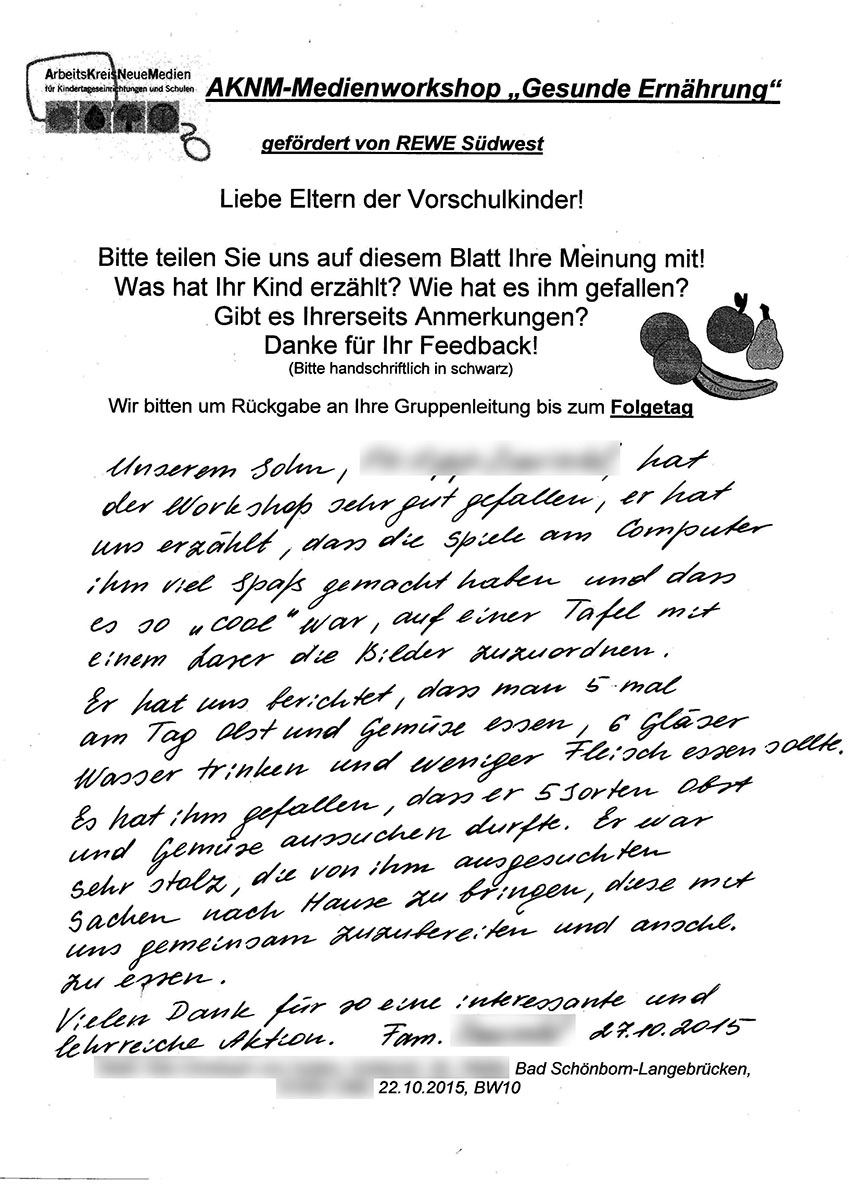 ArbeitsKreisNeueMedien
für Kindertageseinrichtungen und Schulen
AKNM-Medienworkshop „Gesunde Ernährung“
gefördert von REWE Südwest
Liebe Eltern der Vorschulkinder!
Bitte teilen Sie uns auf diesem Blatt Ihre Meinung mit!
Was hat Ihr Kind erzählt? Wie hat es ihm gefallen?
Gibt es Ihrerseits Anmerkungen?
Danke für Ihr Feedback!
(Bitte handschriftlich in schwarz)
Wir bitten um Rückgabe an Ihre Gruppenleitung bis zum Folgetag
Unserem Sohn, hat
der Workshop sehr gut gefallen, er hat
uns erzählt, dass die Spiele am Computer
ihm viel Spaß gemacht haben und dass
es so „cool“ war, auf einer Tafel mit
einem Laser die Bilder zuzuordnen.
Er hat uns berichtet, dass man 5 mal
am Tag Obst und Gemüse essen, 6 Gläser
Wasser trinken und weniger Fleisch essen sollte.
Es hat ihm gefallen, dass er 5 Sorten Obst
und Gemüse aussuchen durfte. Er war
sehr stolz, die von ihm ausgesuchten
Sachen nach Hause zu bringen, diese mit
uns gemeinsam zuzubereiten und anschl.
zu essen.
Vielen Dank für so eine interessante und
lehrreiche Aktion. Fam. 27.10.2015
Bad Schönborn-Langebrücken,
22.10.2015, BW10